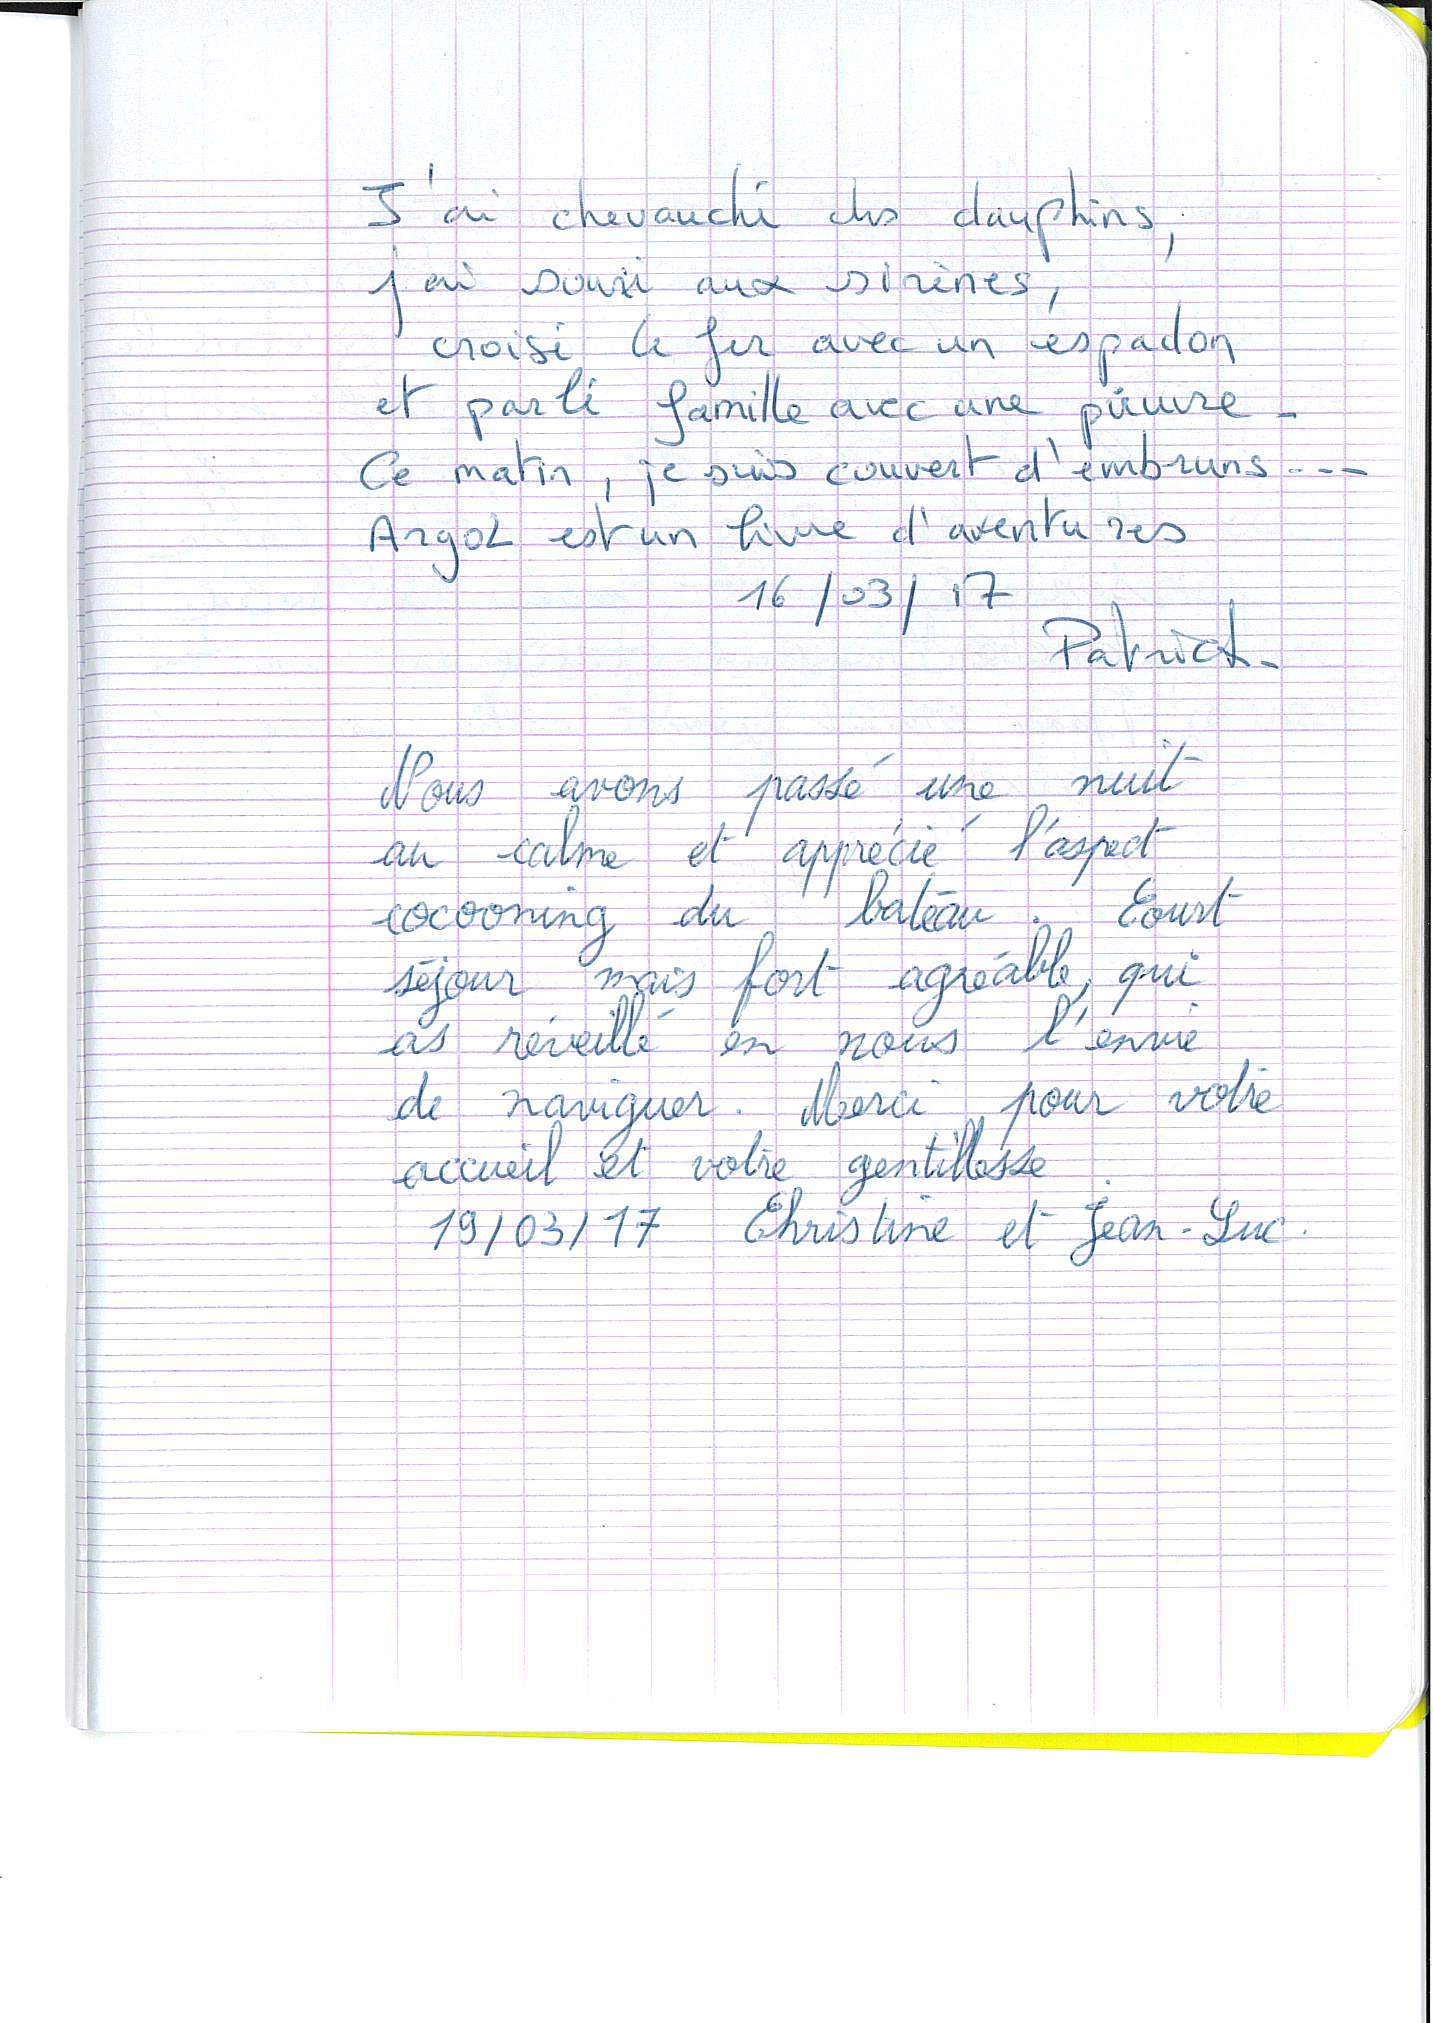 J'ai chevauché des dauphins,
j'ai souri aux sirènes,
croisé le fer avec un éspadon
et parlé famille avec une pieuvre -
Ce matin, je suis couvert d'embruns ---
Argol est un livre d'aventures
16/03/17
Patrick -
Nous avons passé une nuit
au calme et apprécié l'aspect
cocooning du bateau. Court
séjour mais fort agréable, qui
as réveillé en nous l'envie
de naviguer. Merci pour votre
accueil et votre gentillesse.
19/03/17 Christine et Jean-Luc.